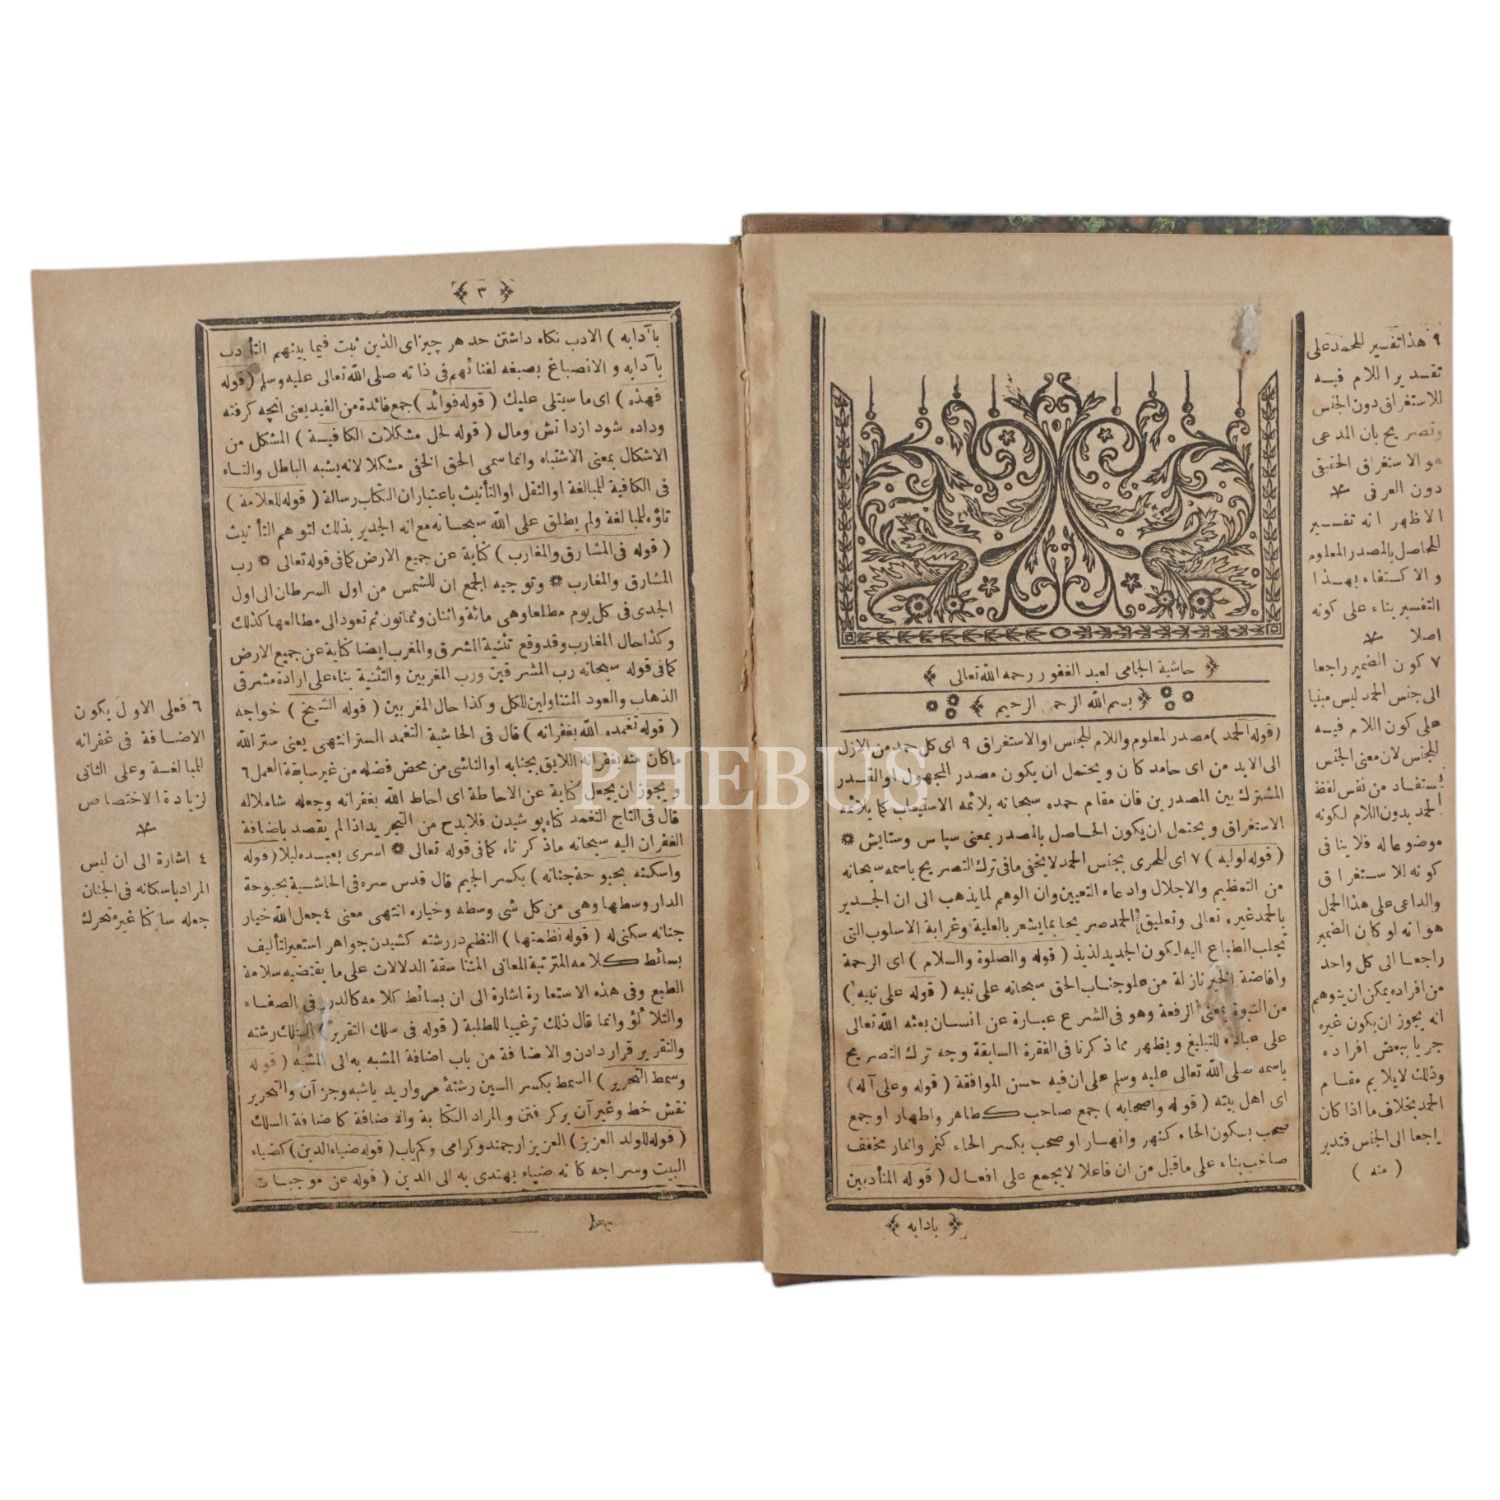 ﴿ حاشية الجامى لعبد الغفور رحمه الله تعالى ﴾
﴿ بسم الله الرحمن الرحيم ﴾
( قوله الحمد ) مصدر لمعلوم واللام للجنس او الاستغراق ٩ اى كل حمد من الازل
الى الابد من اى حامد كان ويحتمل ان يكون مصدر المجهول او القدر
المشترك بين المصدرين فان مقام حمده سبحانه يلائمه الاستيعاب كما يلائمه
الاستغراق ويحتمل ان يكون الحاصل بالمصدر بمعنى سپاس وستايش *
( قوله لوليه ) ٧ اى للحرى بجنس الحمد لايخفى مافى ترك التصريح باسمه سبحانه
من التعظيم والاجلال وادعاء التعيين وان الوهم لما يذهب الى ان الجدير
بالحمد غيره تعالى وتعليق الحمد صريحا بما يشعر بالعلية وغرابة الاسلوب التى
يجلب الطباع اليه لكون الجديد لذيذ ( قوله والصلوة والسلام ) اى الرحمة
وافاضة الخير نازلة من علو جناب الحق سبحانه على نبيه ( قوله على نبيه )
من النبوة بمعنى الرفعة وهو فى الشرع عبارة عن انسان بعثه الله تعالى
على عباده للتبليغ ويظهر مما ذكرنا فى الفقرة السابقة وجه ترك التصريح
باسمه صلى الله تعالى عليه وسلم على ان فيه حسن الموافقة ( قوله وعلى آله )
اى اهل بيته ( قوله واصحابه ) جمع صاحب كطاهر واطهار او جمع
صحب بسكون الحاء كنهر وانهار او صحب بكسر الحاء كنمر وانمار مخفف
صاحب بناء على ماقيل من ان فاعلا لايجمع على افعال ( قوله المتأدبين
﴿ بادابه ﴾
٩ هذا تفسير للحمد على
تقدير اللام فيه
للاستغراق دون الجنس
وتصريح بان المدعى
هو الاستغراق الحقيقى
دون العرفى
الاظهر انه تفسير
للحاصل بالمصدر المعلوم
والاكتفاء بهذا
التفسير بناء على كونه
اصلا
٧ كون الضمير راجعا
الى جنس الحمد ليس مبنيا
على كون اللام فيه
للجنس لان معنى الجنس
يستفاد من نفس لفظ
الحمد بدون اللام لكونه
موضوعا له فلا ينافى
كونه للاستغراق
والداعى على هذا الحمل
هو انه لو كان الضمير
راجعا الى كل واحد
من افراده يمكن ان يتوهم
انه يجوز ان يكون غيره
جريا ببعض افراده
وذلك لايلايم مقام
الحمد بخلاف ما اذا كان
راجعا الى الجنس فتدبر
( منه )
﴿ ٣ ﴾
بآدابه ) الادب نكاه داشتن حد هر چيز اى الذين ثبت فيما بينهم التأدب
بآدابه والانصباغ بصبغه لفنائهم فى ذاته صلى الله تعالى عليه وسلم ( قوله
فهذه ) اى ما سيتلى عليك ( قوله فوائد ) جمع فائدة من الفيد يعنى انچه كرفته
وداده شود ازدانش ومال ( قوله لحل مشكلات الكافية ) المشكل من
الاشكال بمعنى الاشتباه وانما سمى الحق الخفى مشكلا لانه يشبه الباطل والتاء
فى الكافية للمبالغة او النقل او التأنيث باعتبار ان الكتاب رسالة ( قوله للعلامة )
تاؤه للمبالغة ولم يطلق على الله سبحانه مع انه الجدير بذلك لتوهم التأنيث
( قوله فى المشارق والمغارب ) كناية عن جميع الارض كما فى قوله تعالى * رب
المشارق والمغارب * وتوجيه الجمع ان للشمس من اول السرطان الى اول
الجدى فى كل يوم مطلعا وهى مائة واثنان وثمانون ثم تعود الى مطالعها كذلك
وكذا حال المغارب وقد وقع تثنية المشرق والمغرب ايضا كناية عن جميع الارض
كما فى قوله سبحانه رب المشرقين ورب المغربين والتثنية بناء على ارادة مشرقى
الذهاب والعود المتناولين للكل وكذا حال المغربين ( قوله الشيخ ) خواجه
( قوله تغمده الله بغفرانه ) قال فى الحاشية التغمد الستر انتهى يعنى ستر الله
ماكان منه بغفرانه اللايق بجنابه او الناشى من محض فضله من غير سابقة العمل ٦
ويجوز ان يجعل كناية عن الاحاطة اى احاط الله بغفرانه وجعله شاملا له
قال فى التاج التغمد كناه پوشيدن فلابدح من التجريد اذا لم يقصد باضافة
الغفران اليه سبحانه ماذكرناه كما فى قوله تعالى * اسرى بعبده ليلا ( قوله
واسكنه بحبوحة جنانه ) بكسر الجيم قال قدس سره فى الحاشية بحبوحة
الدار وسطها وهى من كل شى وسطه وخياره انتهى معنى ٤ جعل الله خيار
جنانه سكنى له ( قوله نظمتها ) النظم در رشته كشيدن جواهر استعير لتأليف
بسائط كلامه المترتبة المعانى المتناسقة الدلالات على ما يقتضيه سلامة
الطبع وفى هذه الاستعارة اشارة الى ان بسائط كلامه كالدرر فى الصفاء
والتلألؤ وانما قال ذلك ترغيبا للطلبة ( قوله فى سلك التقرير ) السلك رشته
والتقرير قرار دادن والاضافة من باب اضافة المشبه به الى المشبه ( قوله
وسمط التحرير ) السمط بكسر السين رشتهٔ مرواريد ياشبه وجز آن والتحرير
نقش خط وغير آن بركرفتن والمراد الكتابة والاضافة كاضافة السلك
( قوله للولد العزيز ) العزيز ارجمند وكرامى وكم ياب ( قوله ضياء الدين ) كضياء
البيت وسراجه كانه ضياء يهتدى به الى الدين ( قوله عن موجبات
٦ فعلى الاول يكون
الاضافة فى غفرانه
للمبالغة وعلى الثانى
لزيادة الاختصاص
٤ اشارة الى ان ليس
المراد باسكانه فى الجنان
جعله ساكنا غير متحرك
PHEBUS